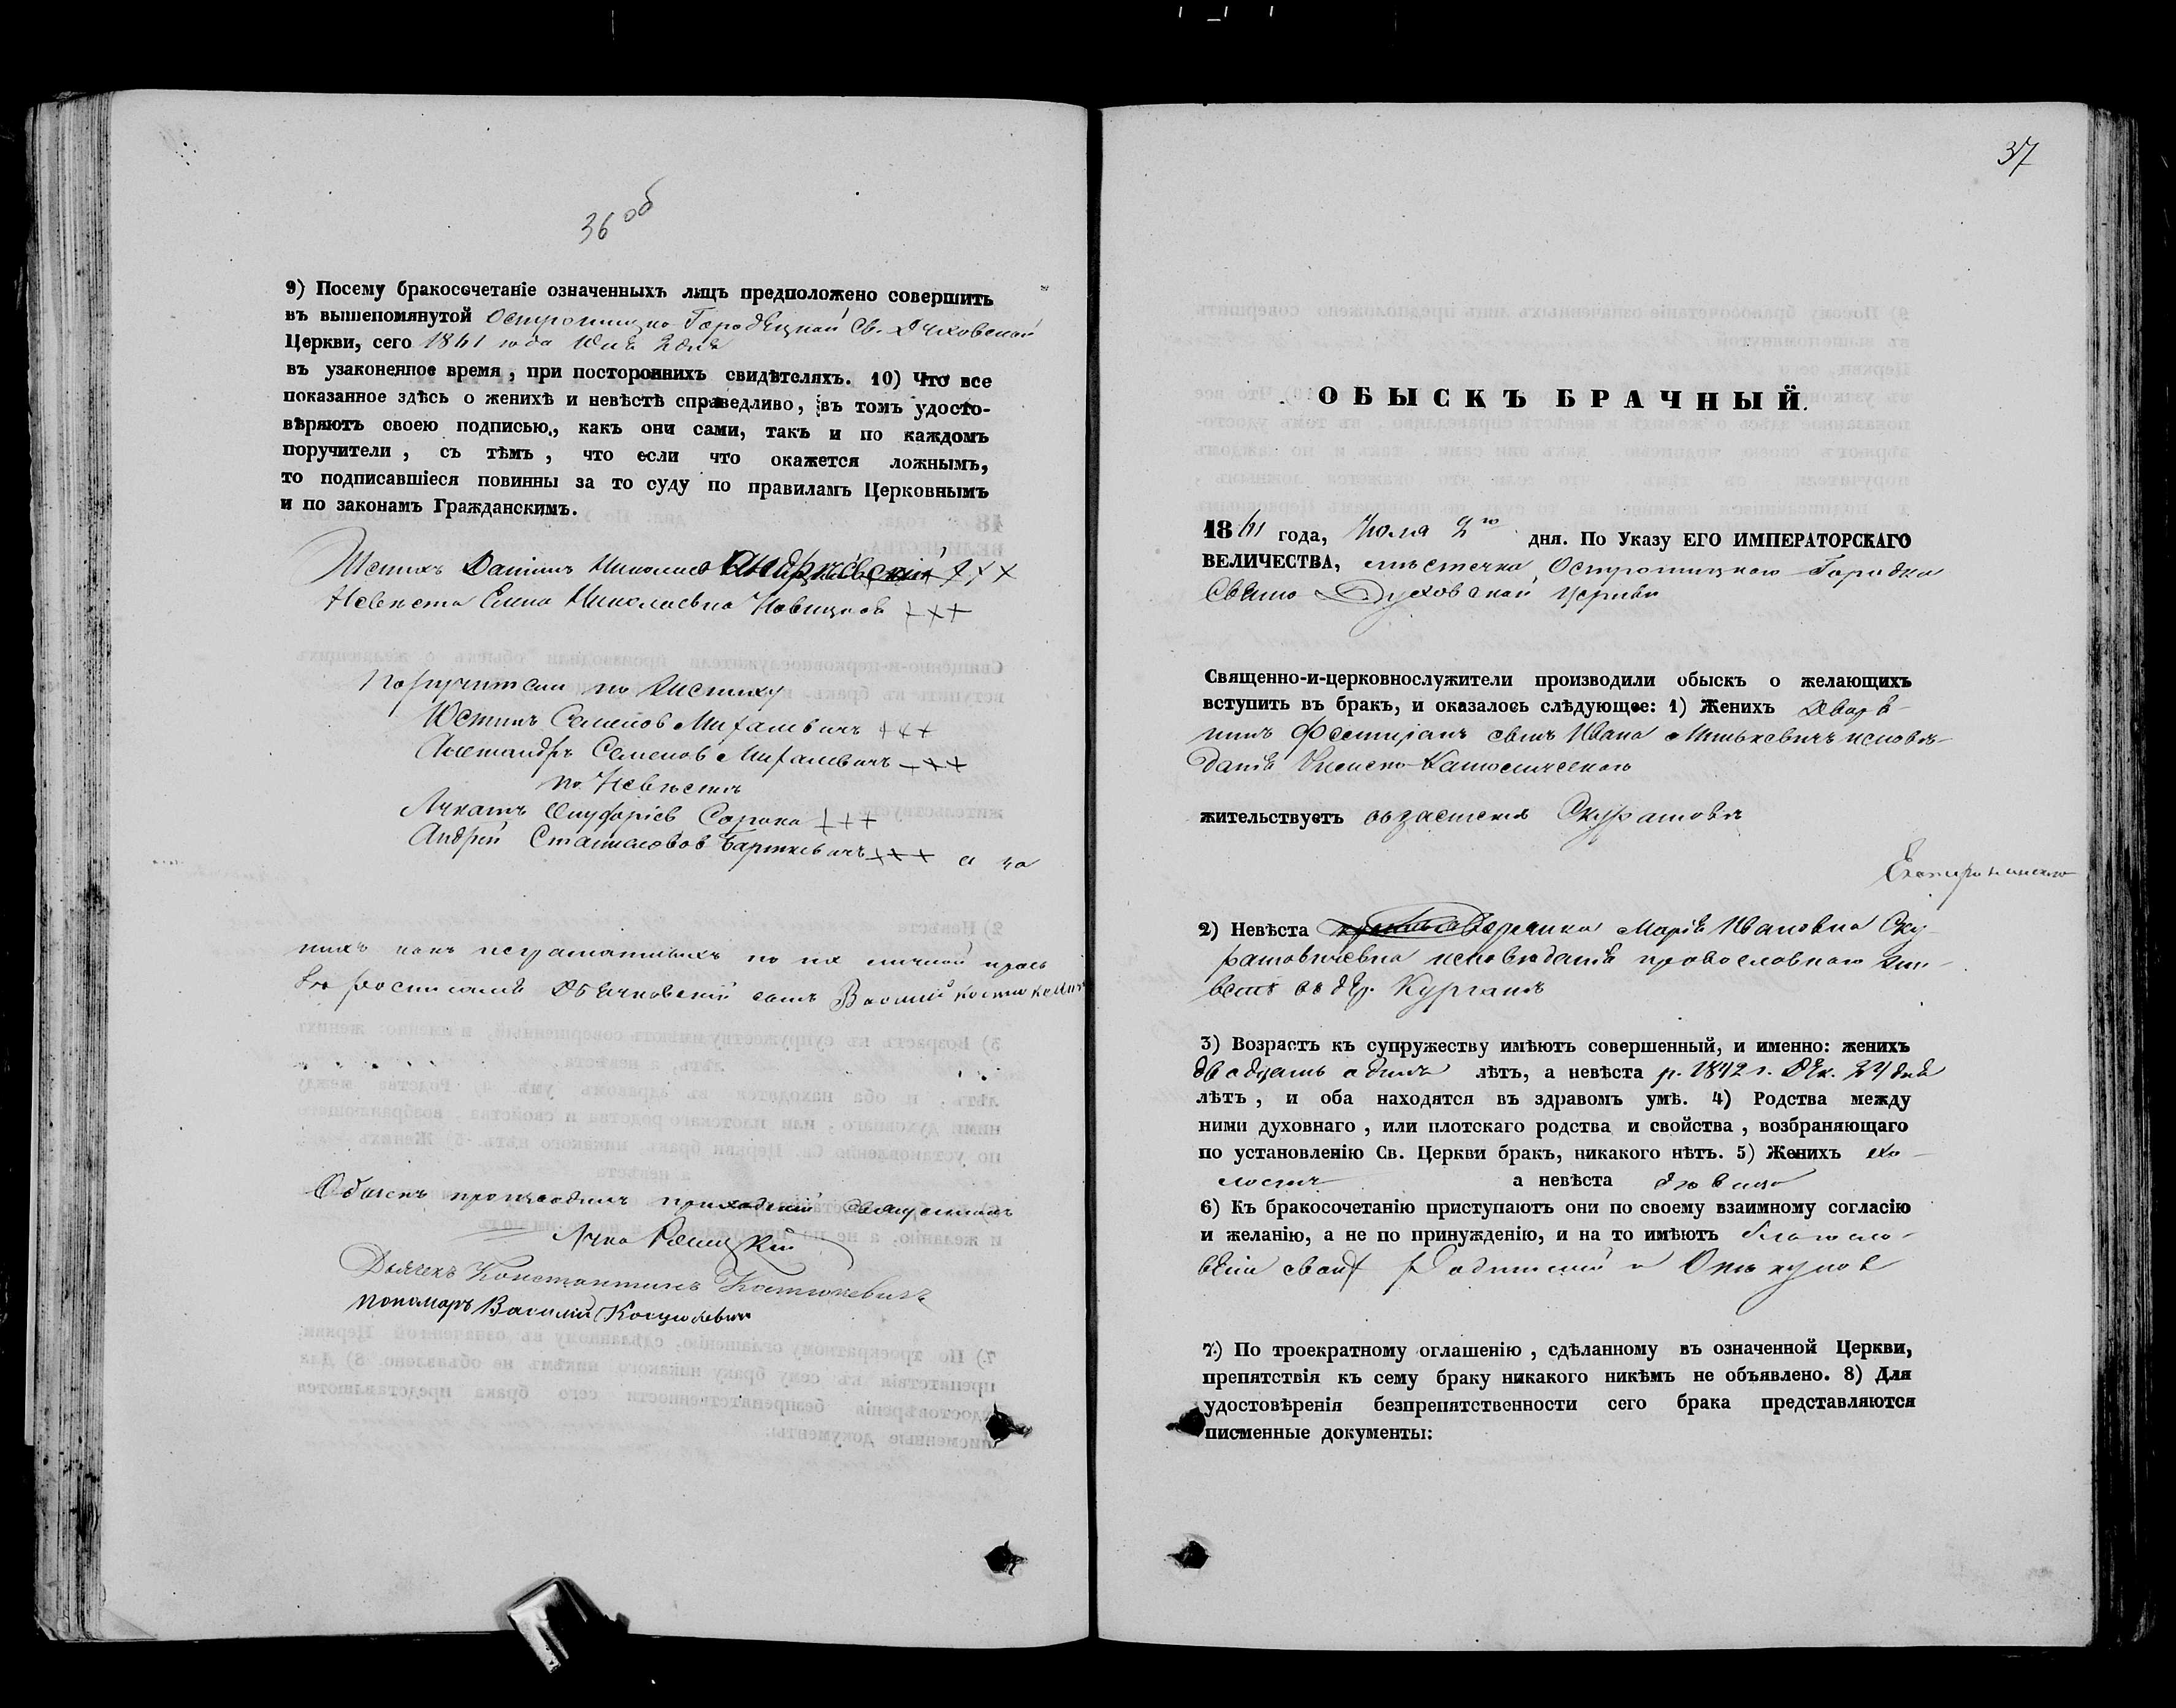 36 об
9) Посему бракосочетаніе означенныхъ лицъ предположено совершить
въ вышепомянутой Острошицко-Городецкой Св. Духовской
Церкви, сего 1861 года Юля 2 дня
въ узаконенное время, при постороннихъ свидѣтеляхъ. 10) Что все
показанное здѣсь о женихѣ и невѣстѣ справедливо, въ томъ удосто-
вѣряютъ своею подписью, какъ они сами, такъ и по каждомъ
поручители, съ тѣмъ, что если что окажется ложнымъ,
то подписавшіеся повинны за то суду по правиламъ Церковнымъ
и по законамъ Гражданскимъ.
Женихъ Даніилъ +++
Невѣста Елена Николаевна Новицкая +++
Поручители по Жениху
Юстинъ Семеновъ Михалевичъ +++
Александръ Семеновъ Михалевичъ +++
по Невѣстѣ
Лукашъ Сорока +++
Андрей Станиславовъ Барткевичъ +++ а за
нихъ какъ неграматныхъ по ихъ личной прось
бѣ сынъ Василій Костюкевичъ
Обыскъ производилъ приходскій священникъ
Лука
Дьячекъ Константинъ Костюкевичъ
пономарь Василій Костюкевичъ
37
ОБЫСКЪ БРАЧНЫЙ.
1861 года, Июля 2го дня. По Указу ЕГО ИМПЕРАТОРСКАГО
ВЕЛИЧЕСТВА, мѣстечка Острошицкаго Городка
Свято Духовской церкви
Священно-и-церковнослужители производили обыскъ о желающихъ
вступить въ бракъ, и оказалось слѣдующее: 1) Женихъ Дворя-
нинъ сынъ Ивана Минькевичъ исповѣ-
данія Римско-Католическаго
жительствуетъ въ застенкѣ Скуратовѣ
2) Невѣста Дворянка Марія Ивановна Ску-
ратовичевна исповѣданія православнаго жи-
ветъ въ дер. Курганѣ
3) Возрастъ къ супружеству имѣютъ совершенный, и именно: женихъ
двадцать одинъ лѣтъ, а невѣста р. 1842 г. Дек. 24 дня
лѣтъ, и оба находятся въ здравомъ умѣ. 4) Родства между
ними духовнаго, или плотскаго родства и свойства, возбраняющаго
по установленію Св. Церкви бракъ, никакого нѣтъ. 5) Женихъ хо-
лостъ а невѣста дѣвица
6) Къ бракосочетанію приступаютъ они по своему взаимному согласію
и желанію, а не по принужденію, и на то имѣютъ благосло-
веніе своихъ Родителей и Опекуновъ
7) По троекратному оглашенію, сдѣланному въ означенной Церкви,
препятствія къ сему браку никакого никѣмъ не объявлено. 8) Для
удостовѣренія безпрепятственности сего брака представляются
писменные документы: